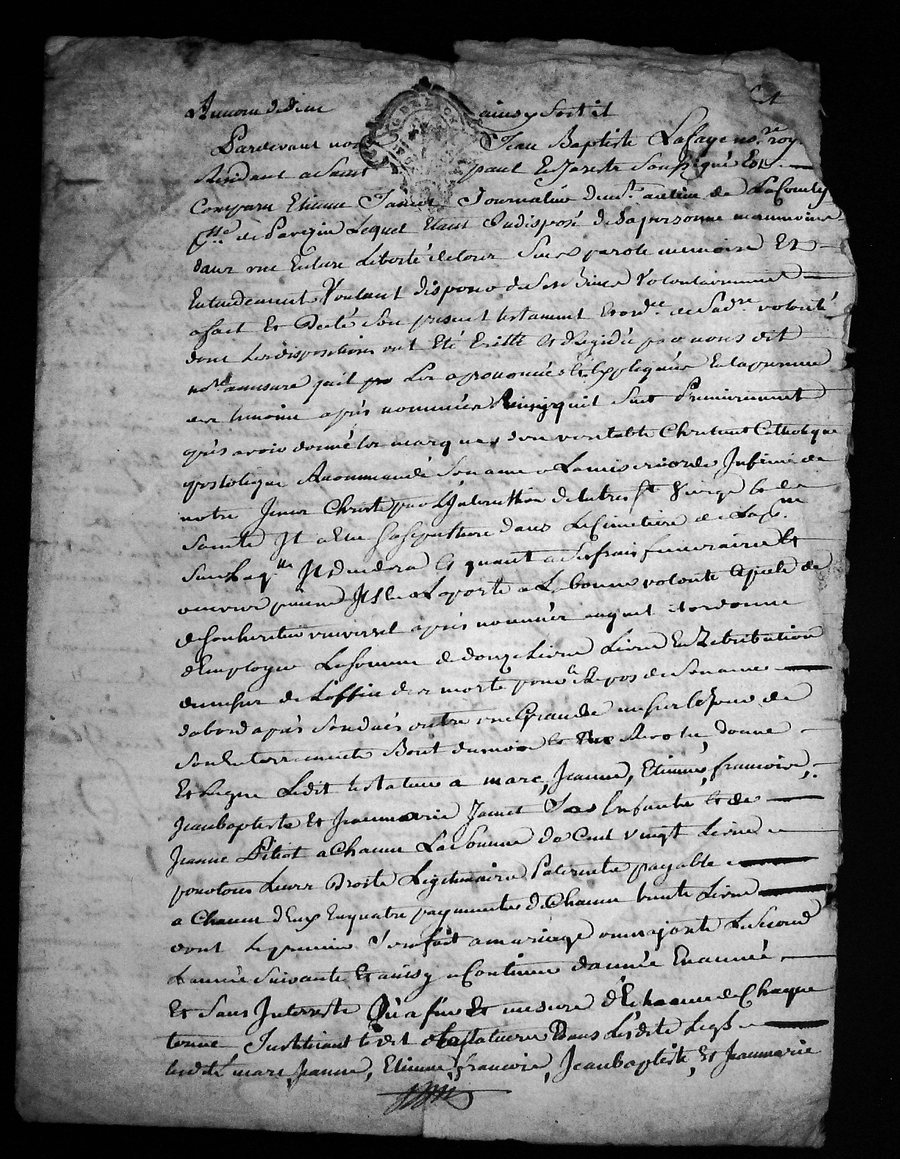 Au nom de dieu ainsy soit il
Pardevant nous Jean Baptiste Lafaye no.re roy
Residant a Saint paul En Jareste Soussigné Est
Comparu Etienne Janot Journalier
de Pavezin Lequel Etant Indisposé de Sa personne neanmoins
dans une Entiere Liberté de tous Ses parole memoire Et
Entendement Voulant disposer de Ses Biens Volontairement
a fait Et Dicté Son present testament Et ord.re de Sa der.re volonté
dont les dispositions ont Eté Ecritte Et Redigée par nous dit
no.re amesure quil les a prononcée & Expliquées En la presence
des temoins après nommées Ainsy quil Suit Premierement
après avoir donné les marques d'un veritable Chretient Catholique
apostolique A recommandé Son ame a La misericorde Infinie de
notre Jesus Christ par L'Intercession de la tres S.te Vierge
Sa Sepulture dans Le Cimetiere de La
Il decedera Et quant a Ses frais funeraire Et
œuvres pieuse Il S'En raporte a La bonne volonté & pieté de
de Son heritier universel après nommée auquel Il ordonne
d'Employer La Somme de douze Livre En Retribution
de messes de L'office des morts pour le Repos de Son ame
dabord après Son decés outre une Grande messe le Jour de
Son Enterrement donne
Et Legue Ledit testateur a marc, Jeanne, Etienne, francoise,
Jeanbaptiste Et Jeanmarie Janot Ses Enfants & de
Jeanne a Chacun La Somme de Cent vingt Livre
pour tous Leurs Droits Legitimaire Paternels payable
a Chacun d'Eux En quatre payements de Chacun trente Livre
dont Le premier Sera fait a mariage ou majorité Le Second
L'année Suivante Et ainsy a Continuer d'année En année
Et Sans Interrests Qu'a fur Et mesure d'Echeance de Chaque
terme Instituant Ledit testateur Dans Lesdits Legs
Lesdits marc, Jeanne, Etienne, francoise, Jeanbaptiste, Et Jeanmarie